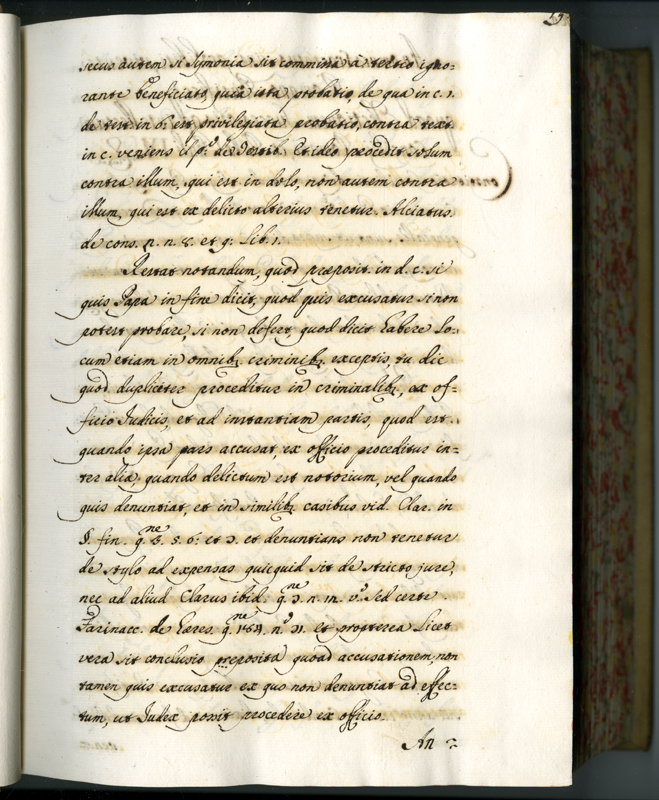 59
secus autem si symonia sit commissa à tertio igno=
rante beneficiato, quia ista probatio, de qua in c. 1.
de test. in 6. est privilegiata probatio, contra text.
in c. veniens el p.º de Testib. Et ideo procedit solum
contra illum, qui est in dolo, non autem contra
illum, qui est ex delicto alterius tenetur. Alciatus
de cons. n. n. 8. et 9. Lib. 1.
Restat notandum, quod præposit. in d. c. si
quis Papa in fine dicit, quod quis excusatur si non
potest probare, si non defert, quod dicit habere lo=
cum etiam in omnib. criminib. exceptis, tu dic
quod dupliciter proceditur in criminalib., ex of=
ficio Iudicis, et ad instantiam partis, quod est.
quando ipsa pars accusat, ex officio proceditur in=
ter alia, quando delictum est notorium, vel quando
quis denuntiat, et in similib. casibus vid. Clar. in
§. fin. q.ne 3. 5. 6: et 7. et denuntians non tenetur
de stylo ad expensas quicquid sit de stricto jure,
nec ad aliud Clarus ibid: q.ne 7. n. in. v.º Sed certe.
Farinacc. de Hæres. q.ne 184. n.º 71. Et propterea licet
vera sit conclusio preposita quoad accusationem, non
tamen quis excusatur ex quo non denuntiat ad effec=
tum, ut Iudex possit procedere ex officio.
An